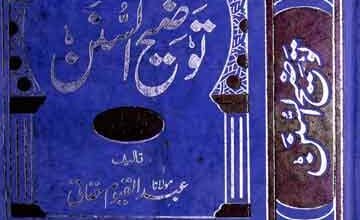 توضیح السنن
تالیف
مولانا
عبد القیوم حقانی
توضیح السنن